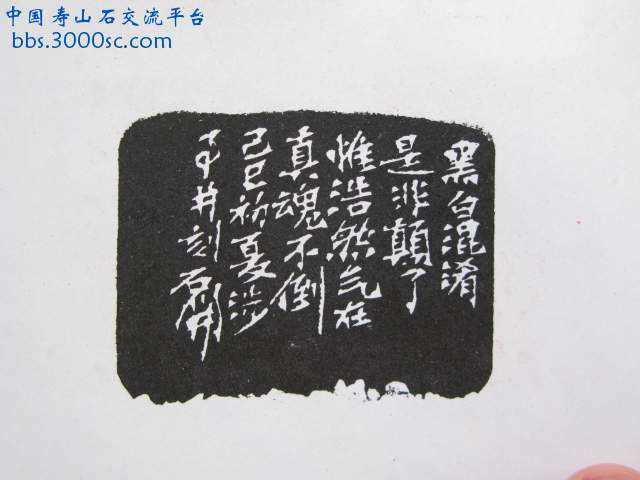 中国寿山石交流平台
bbs.3000sc.com
黑白混淆
是非顛了
惟浩然气在
真魂不倒
己巳初夏涉
井刻石